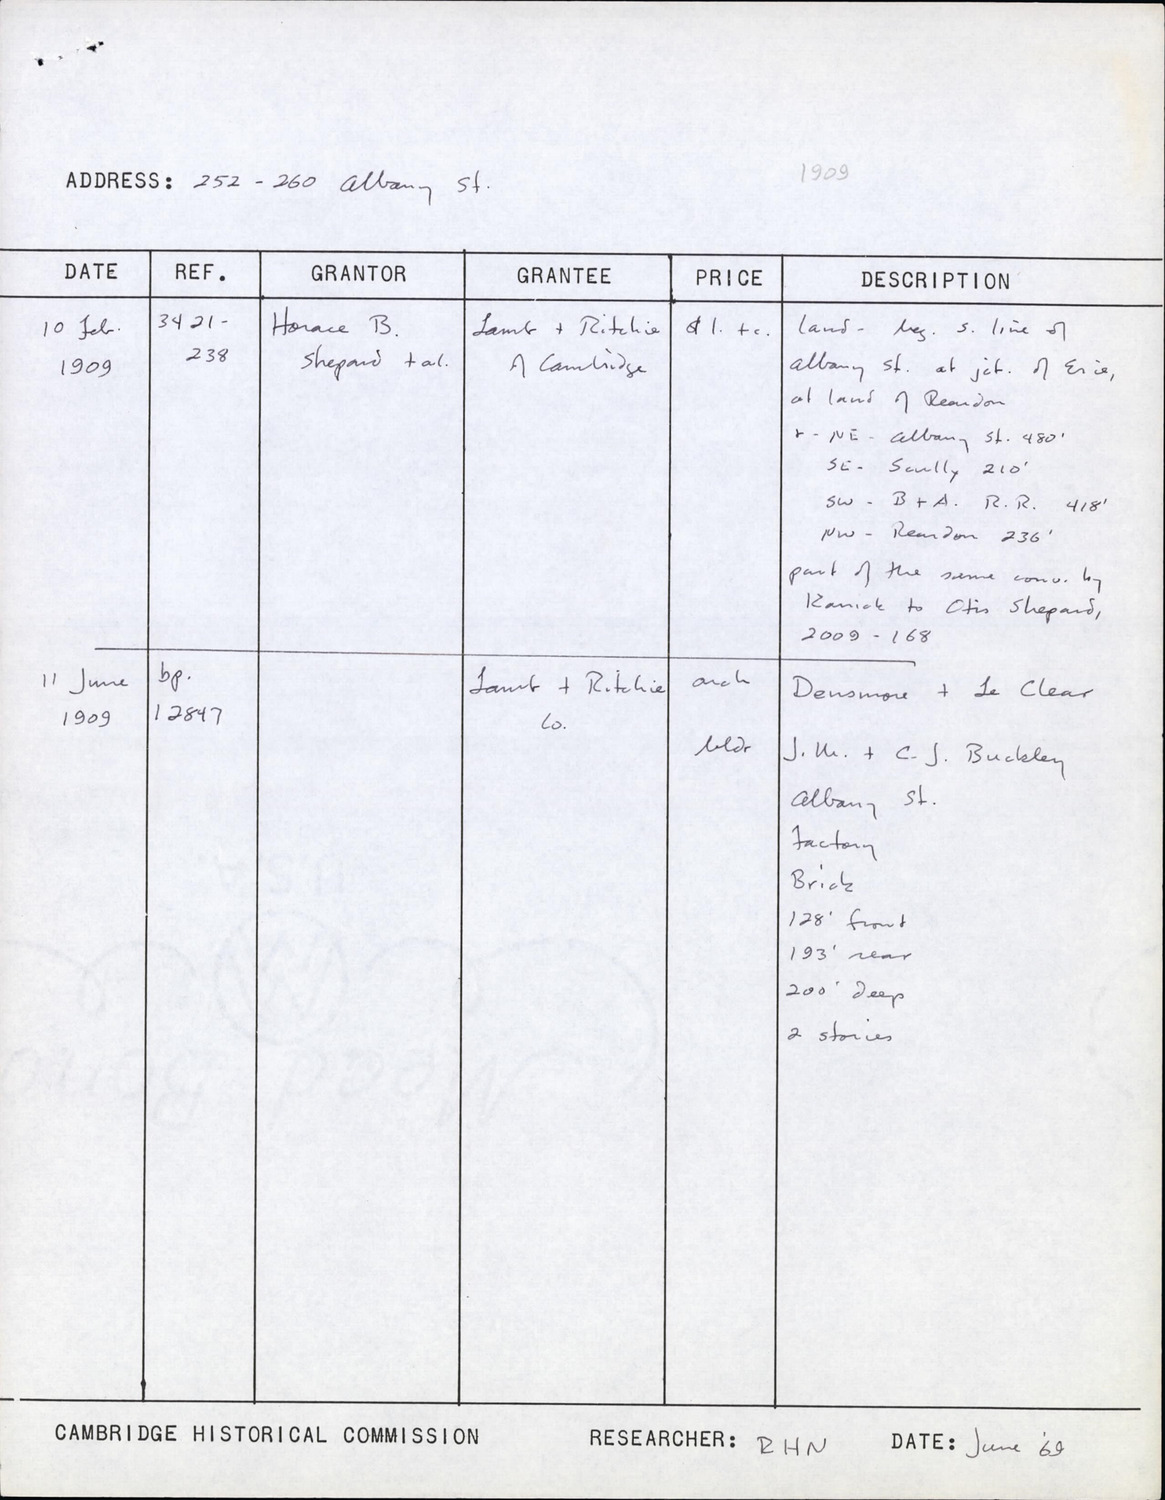 1909
ADDRESS: 252 - 260 Albany St.
DATE REF. GRANTOR GRANTEE PRICE DESCRIPTION
10 Feb. 1909
3421-238
Horace B.
Shepard + al.
Lamb + Ritchie
of Cambridge
$1. +c.
land - beg. s. line of
Albany St. at jct. of Erie,
at land of Reardon
+ - NE - Albany St. 480'
SE - Scully 210'
SW - B + A. R.R. 418'
NW - Reardon 236'
part of the same conv. by
to Otis Shepard,
2009 - 168
11 June
1909
bp.
12847
Lamb + Ritchie
Co.
arch
Densmore + Le Clear
bldr
J.M. + C.J. Buckley
Albany St.
Factory
Brick
128' front
193' rear
200' deep
2 stories
CAMBRIDGE HISTORICAL COMMISSION RESEARCHER: RHN DATE: June '69